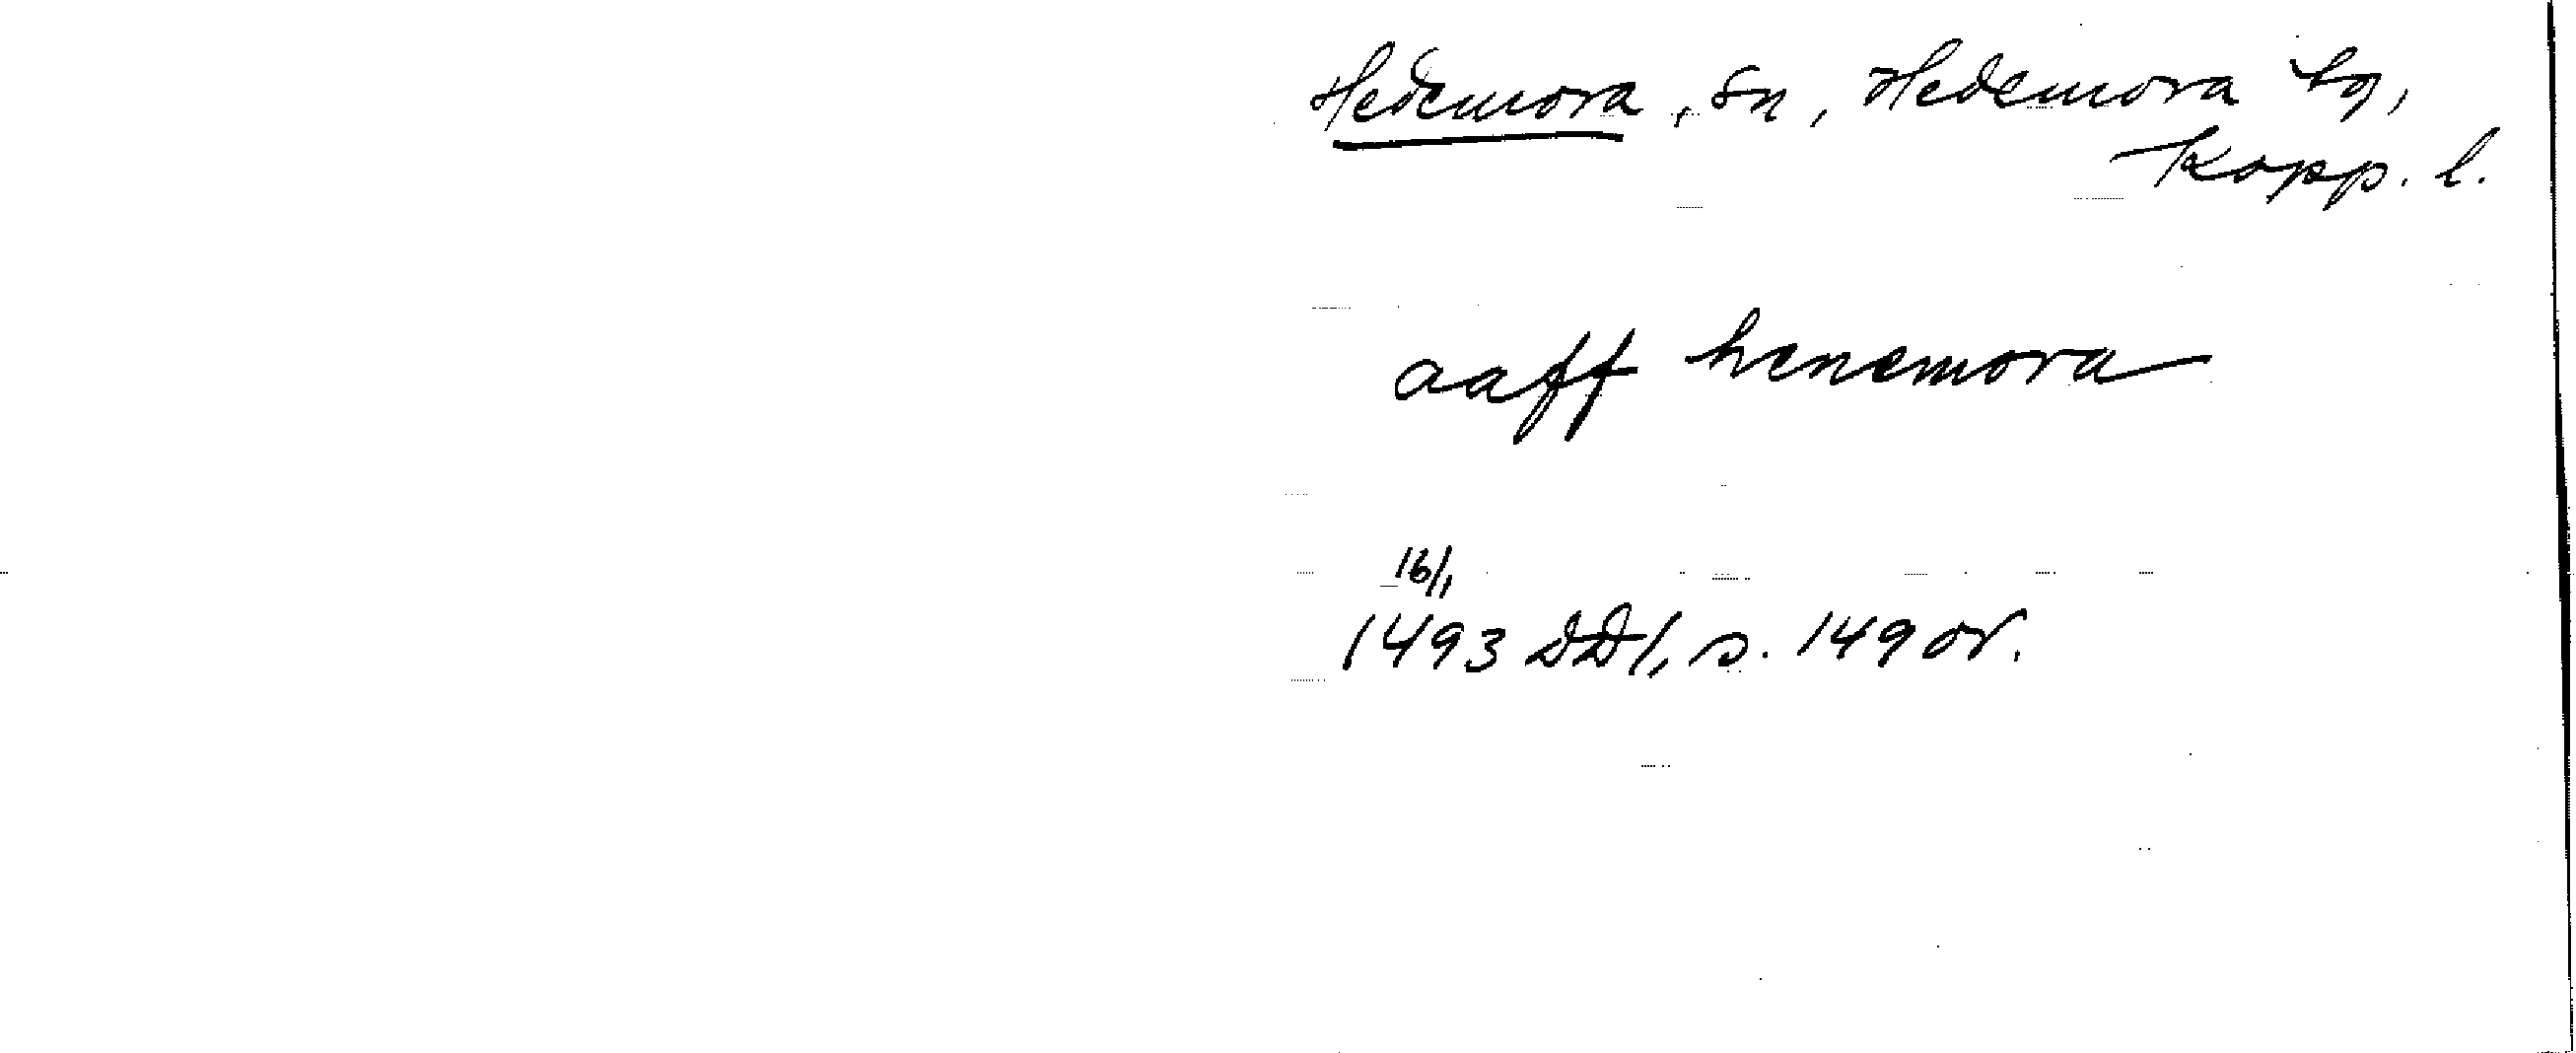 Hedemora, sn, Hedemora tg,
Kopp. l.
aaff henemora
16/1
1493 DD1, s. 149 or.